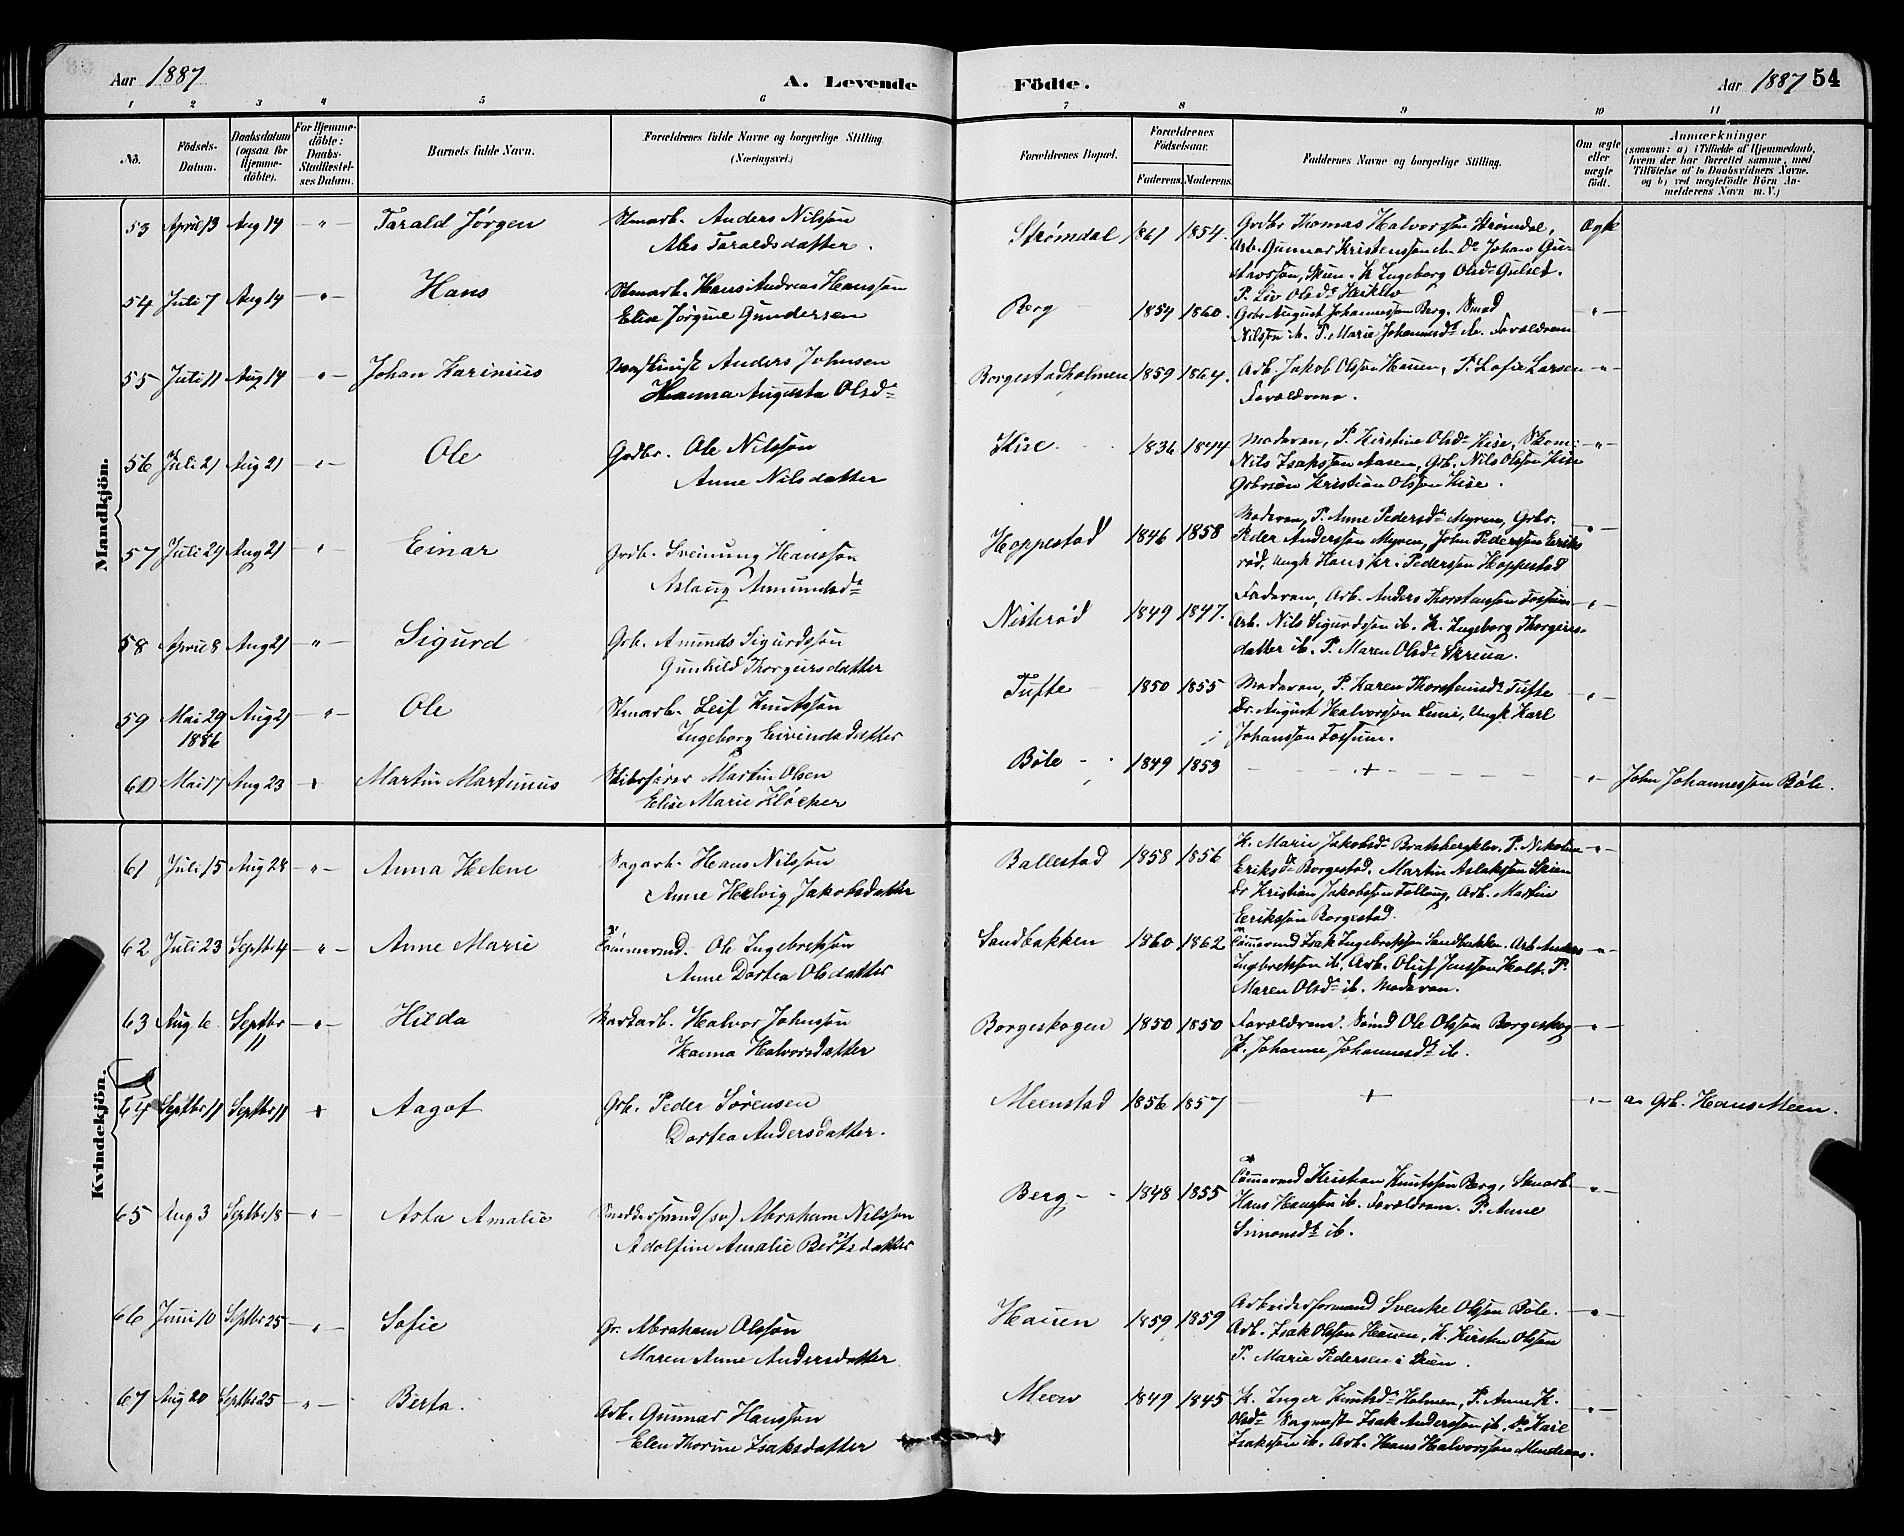 Aar 1887. A. Levende Födte. Aar 1887 54
1 2 3 4 5 6 7 8 9 10 11
No. Födsels-Datum. Daabsdatum (ogsaa for Hjemmedöbte). For Hjemmedöbte: Daabs-Stadfæstelses Datum. Barnets fulde Navn. Forældrenes fulde Navne og borgerlige Stilling. (Næringsvei.) Forældrenes Bopæl. Forældrenes Födselsaar. Faderens. Moderens. Faddernes Navne og borgerlige Stilling. Om ægte eller uægte födt. Anmærkninger (saasom: a) i Tilfælde af Hjemmedaab, hvem der har forrettet samme, med Tilföielse af to Daabsvidners Navne, og b) ved uægtefödte Börn Anmelderens Navn m. V.)
Mandkjön.
53 April 13 Aug 14 - " - Tarald Jørgen Stmarb. Anders Nilssøn
Taraldsdatter.
Strømdal 1861 1854. Grdbr Thomas Halvorssøn Strømdal, Ægte
Arb. Gunnar Kristenssøn ib. Do Johan Gu-
stavssøn, Skien. K. Ingeborg Olsdr Gulset.
P. Liv Olsdr
54 Juli 7 Aug 14 - " - Hans Stmarb. Hans Andreas Hanssøn
Elise Jørgine Gundersen
Berg 1854 1860. Grbr August Johannessøn Berg. Smed - " -
Nilssøn ib. P. Marie Johannesdr ib. Forældrene
55 Juli 11 Aug 14 - " - Johan Karinius Maskinist Anders Johnsen
Hanna Augusta Olsdr
Borgestadholmen 1859 1864. Arb. Jakob Olssøn Hauen, P. Sofie Larsen - " -
Forældrene.
56 Juli 21 Aug 21 - " - Ole Grdbr. Ole Nilssøn
Anne Nilsdatter
Kise 1836 1844 Moderen, P. Kirstine Olsdr Kise, Skom: - " -
Nils Isakssøn Aasen, Grb. Nils Olssøn Kise
Grbrsøn Kristian Olssøn Kise.
57 Juli 24 Aug 21 - " - Einar Grdb. Sveinung Hanssøn
Aslaug Amundsdr
Hoppestad 1846 1858 Moderen, P. Anne Pedersdr Myren, Grbr. - " -
Peder Anderssøn Myren, John Pederssøn Eriks
rød, Ungk Hans Kr. Pederssøn Hoppestad
58 April 8 Aug 21 - " - Sigurd Grb. Amund Sigurdssøn
Gunhild Thorgeirsdatter
Nisterød 1849 1847. Faderen, Arb. Anders Thorstenssøn Fossum - " -
Arb. Nils Sigurdssøn ib. K. Ingeborg Thorgeirs-
datter ib. P. Maren Olsdr Skreua.
59 Mai 29 Aug 21 - " - Ole Stmarb. Leif Knutssøn
1886 Ingeborg Eivindsdatter
Tufte 1850 1855 Moderen, P. Karen Thorsteinsdr Tufte - " -
Gr. August Halvorssøn Ungk Karl
Johanssøn Fossum.
60 Mai 17 Aug 23 + Martin Martinius Skibsfører Martin Olsen
Elise Marie Kløcker
Bøle 1849 1853 - + - - " - John Johannessøn Bøle.
Kvindekjön.
61 Juli 15 Aug 28 - " - Anna Helene Sagarb. Hans Nilssøn
Anne Helvig Jakobsdatter
Ballestad 1858 1856 K. Marie Jakobsdr Bratsbergklev. P. Nikoline - " -
Eriksdr Borgestad. Martin Aslakssøn Skien
Gr Kristian Jakobssøn Follaug, Arb. Martin
Erikssøn Borgestad.
62 Juli 23 Septbr 4 - " - Anne Marie Tømmermd. Ole Ingebretssøn
Anne Dortea Olsdatter
Sandbakken 1860 1862 Tømmermd Isak Ingebretssøn Sandbakken. Arb Anders - " -
Ingebretssøn ib, Arb. Oluf Jenssøn Holt. P.
Maren Olsdr ib. Moderen.
63 Aug 6 Septbr - " - Hilda Markarb. Halvor Johnssøn
11 Hanna Halvorsdatter
Borgeskogen 1850 1850 Forældrene. Smed Ole Olssøn Borgeskog - " -
P. Johanne Johannesdr ib.
64 Septbr 11 Septbr 11 + Aagot Grb. Peder Sørensen
Dortea Andersdatter.
Meenstad 1856 1857 - + - - " - a. Grb. Hans Meen.
65 Aug 3 Septbr 18 - " - Asta Amalie Snedkersvend (sv) Abraham Nilssøn
Adolfine Amalie Berntsdatter
Berg 1848 1855 Tømmermd Kristian Knutssøn Berg, Stmarb - " -
Hans Hanssøn ib. Forældrene. P. Anne
Simonsdr ib.
66 Juni 10 Septbr 25 - " - Sofie Gr. Abraham Olssøn
Maren Anne Andersdatter
Hauen 1859 1859 Arbeidsformand Svenke Olssøn Bøle. - " -
Arb. Isak Olssøn Hauen, K. Kirsten Olssøn
P. Marie Pedersen i Skien.
67 Aug 20 Septbr 25 - " - Berta. Arb. Gunnar Hanssøn
Elen Thorine Isaksdatter
Meen 1849 1845 K. Inger Knutsdr Holmen, P. Anne K. - " -
Olsdr Sagmst Isak Anderssøn ib, Do Karl
Isakssøn ib. Arb. Hans Halvorssøn